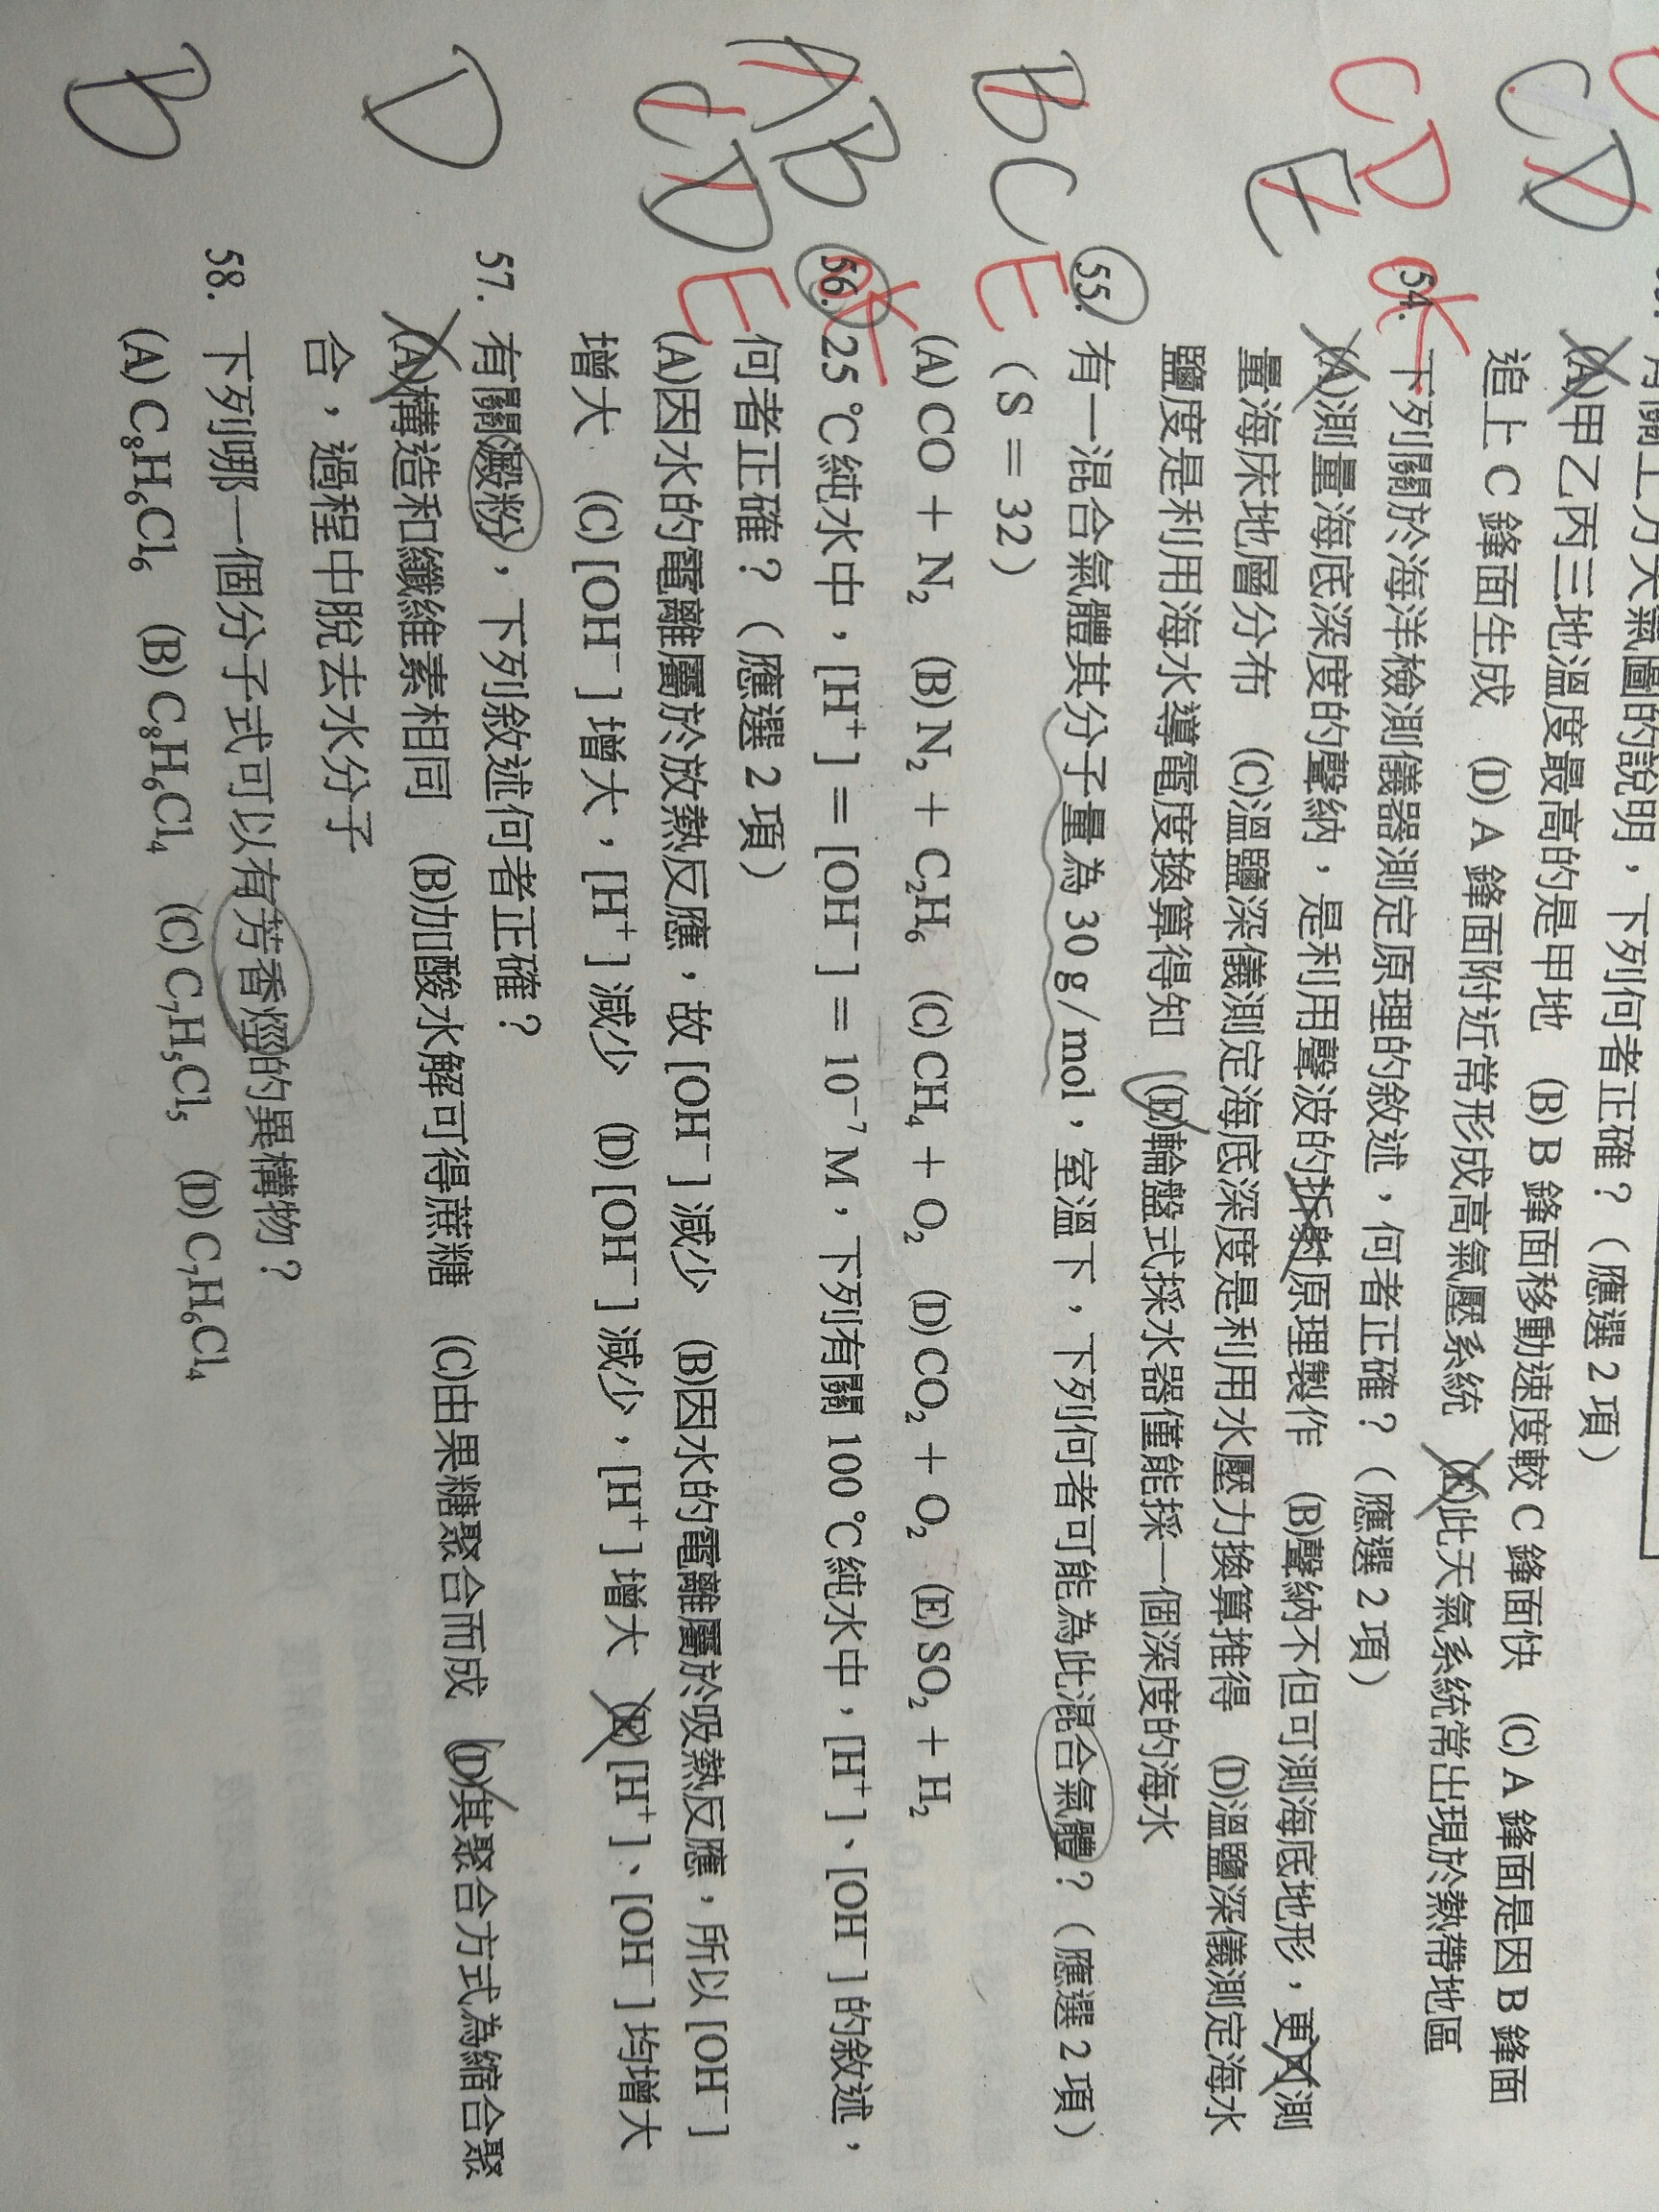 有關上方天氣圖的說明，下列何者正確？（應選 2 項）
(A)甲乙丙三地溫度最高的是甲地 (B) B 鋒面移動速度較 C 鋒面快 (C) A 鋒面是因 B 鋒面
追上 C 鋒面生成 (D) A 鋒面附近常形成高氣壓系統 (E)此天氣系統常出現於熱帶地區
CD
54. 下列關於海洋檢測儀器測定原理的敘述，何者正確？（應選 2 項）
(A)測量海底深度的聲納，是利用聲波的折射原理製作 (B)聲納不但可測海底地形，更可測
量海床地層分布 (C)溫鹽深儀測定海底深度是利用水壓力換算推得 (D)溫鹽深儀測定海水
鹽度是利用海水導電度換算得知 (E)輪盤式採水器僅能採一個深度的海水
CD
E
55. 有一混合氣體其分子量為 30 g/mol，室溫下，下列何者可能為此混合氣體？（應選 2 項）
（S = 32）
(A) CO + N₂ (B) N₂ + C₂H₆ (C) CH₄ + O₂ (D) CO₂ + O₂ (E) SO₂ + H₂
BCE
56. 25 ℃純水中，[H⁺] = [OH⁻] = 10⁻⁷ M，下列有關 100 ℃純水中，[H⁺]、[OH⁻] 的敘述，
何者正確？（應選 2 項）
(A)因水的電離屬於放熱反應，故 [OH⁻] 減少 (B)因水的電離屬於吸熱反應，所以 [OH⁻]
增大 (C) [OH⁻] 增大，[H⁺] 減少 (D) [OH⁻] 減少，[H⁺] 增大 (E) [H⁺]、[OH⁻] 均增大
AB
CDE
57. 有關澱粉，下列敘述何者正確？
(A)構造和纖維素相同 (B)加酸水解可得蔗糖 (C)由果糖聚合而成 (D)其聚合方式為縮合聚
合，過程中脫去水分子
D
58. 下列哪一個分子式可以有芳香烴的異構物？
(A) C₈H₆Cl₆ (B) C₈H₆Cl₄ (C) C₇H₅Cl₅ (D) C₇H₆Cl₄
B